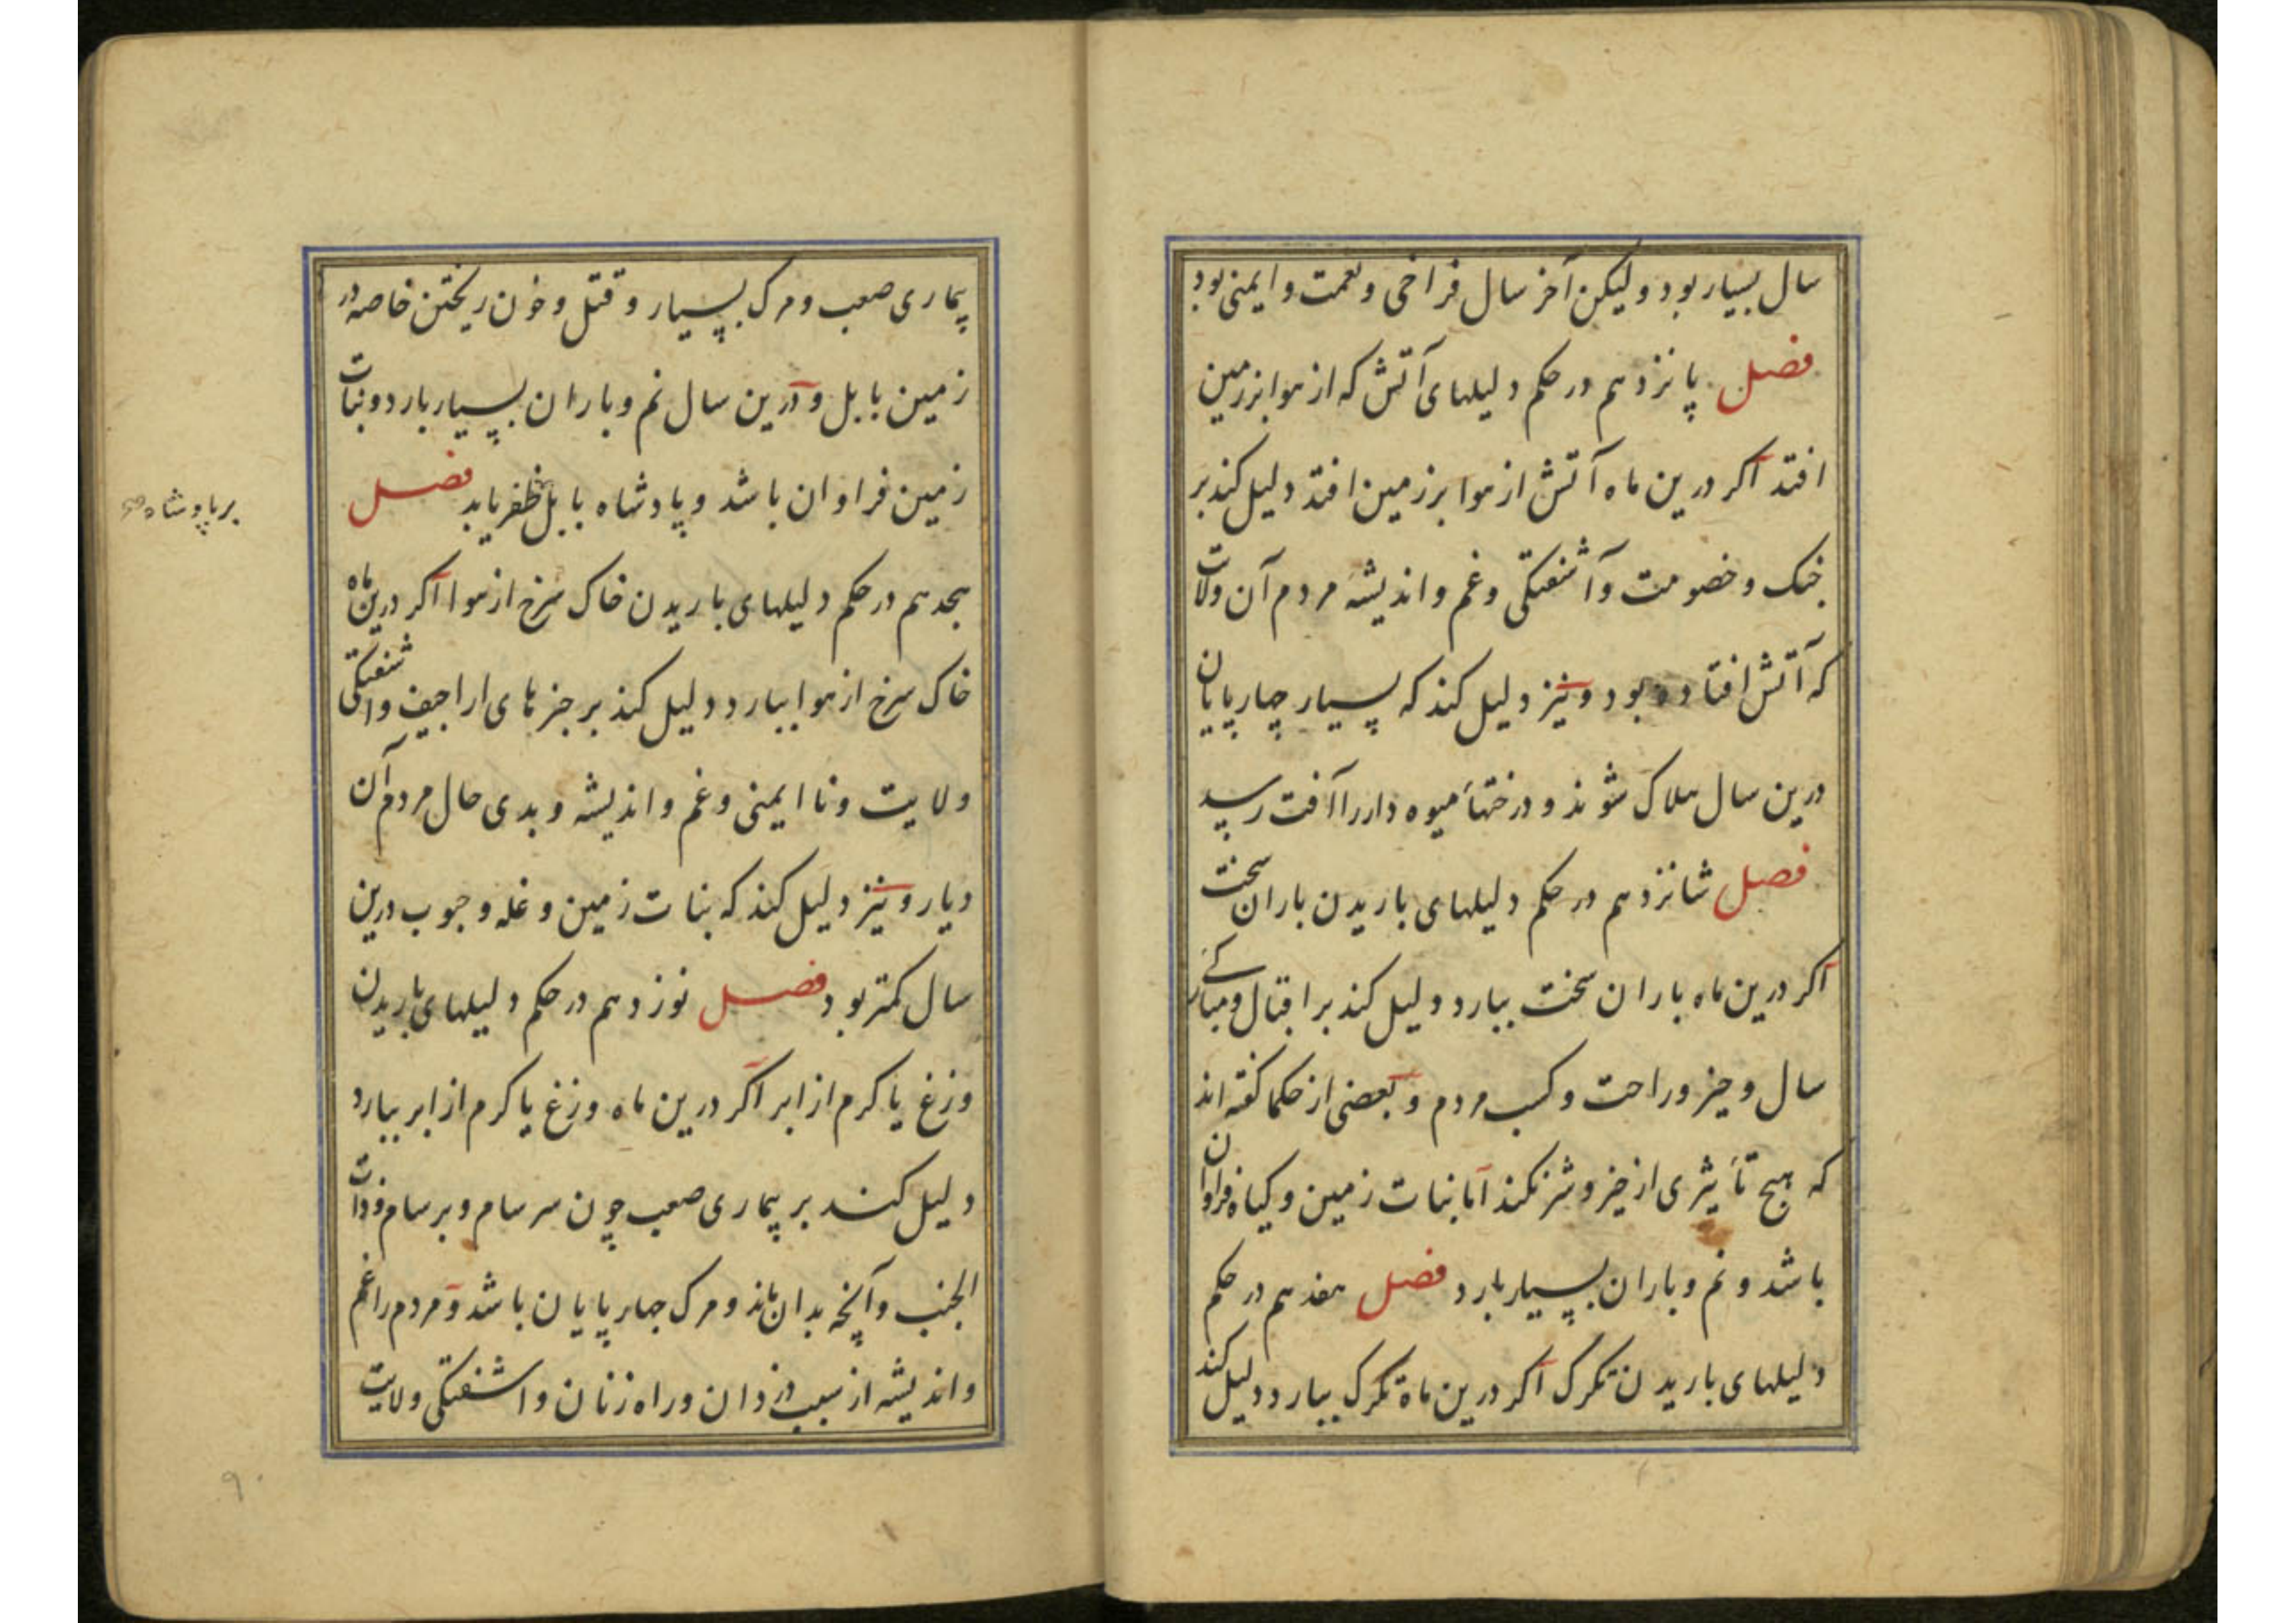 سال بسیار بود ولیکن آخر سال فراخی و نعمت و ایمنی بود
فصل پانزدهم در حکم دلیلهای آتش که از هوا بر زمین
افتد اکر درین ماه آتش از هوا بر زمین افتد دلیل کند بر
جنک و خصومت و آشفتکی و غم و اندیشهٔ مردم آن ولات
که آتش افتاده بود و نیز دلیل کند که بسیار چارپایان
درین سال هلاک شوند و درختهاء میوه دار را آفت رسید
فصل شانزدهم در حکم دلیلهای باریدن باران سخت
اکر درین ماه باران سخت ببارد دلیل کند بر اقبال و مبارکی
سال و خیر و راحت و کسب مردم و بعضی از حکما کفته اند
که هیچ تأثیری از خیر و شر نکند اما نبات زمین و کیاه فراوان
باشد و نم و باران بسیار بارد فصل هفدهم در حکم
دلیلهای باریدن تکرک اکر درین ماه تکرک ببارد دلیل کند
بیماری صعب و مرک بسیار و قتل و خون ریختن خاصه در
زمین بابل و درین سال نم و باران بسیار بارد و نبات
زمین فراوان باشد و پادشاه بابل ظفر یابد فصل
بر پادشاه
هجدهم در حکم دلیلهای باریدن خاک سرخ از هوا اکر درین ماه
خاک سرخ از هوا ببارد دلیل کند بر خبرهای اراجیف و اشفتکی
ولایت و نا ایمنی و غم و اندیشه و بدی حال مردم آن
دیار و نیز دلیل کند که نبات زمین و غله و حبوب درین
سال کمتر بود فصل نوزدهم در حکم دلیلهای باریدن
وزغ یا کرم از ابر اکر درین ماه وزغ یا کرم از ابر ببارد
دلیل کند بر بیماری صعب چون سرسام و برسام و ذات
الجنب و آنچه بدان ماند و مرک چهارپایان باشد و مردم را غم
و اندیشه از سبب دزدان و راه زنان و اشفتکی ولایت
۹۰